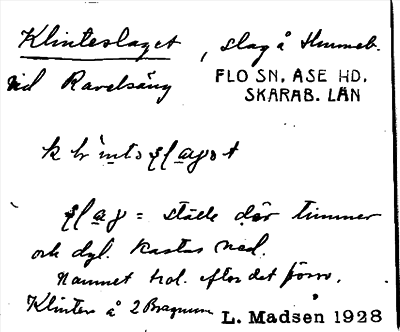 Klinteslaget, slag å Hunneb.
vid Ravelsäng
FLO SN, ÅSE HD.
SKARAB. LÄN
slag = ställe där timmer
och dyl. kastas ned.
Namnet tol. efter det förv.
Klinten å 2
L. Madsen 1928